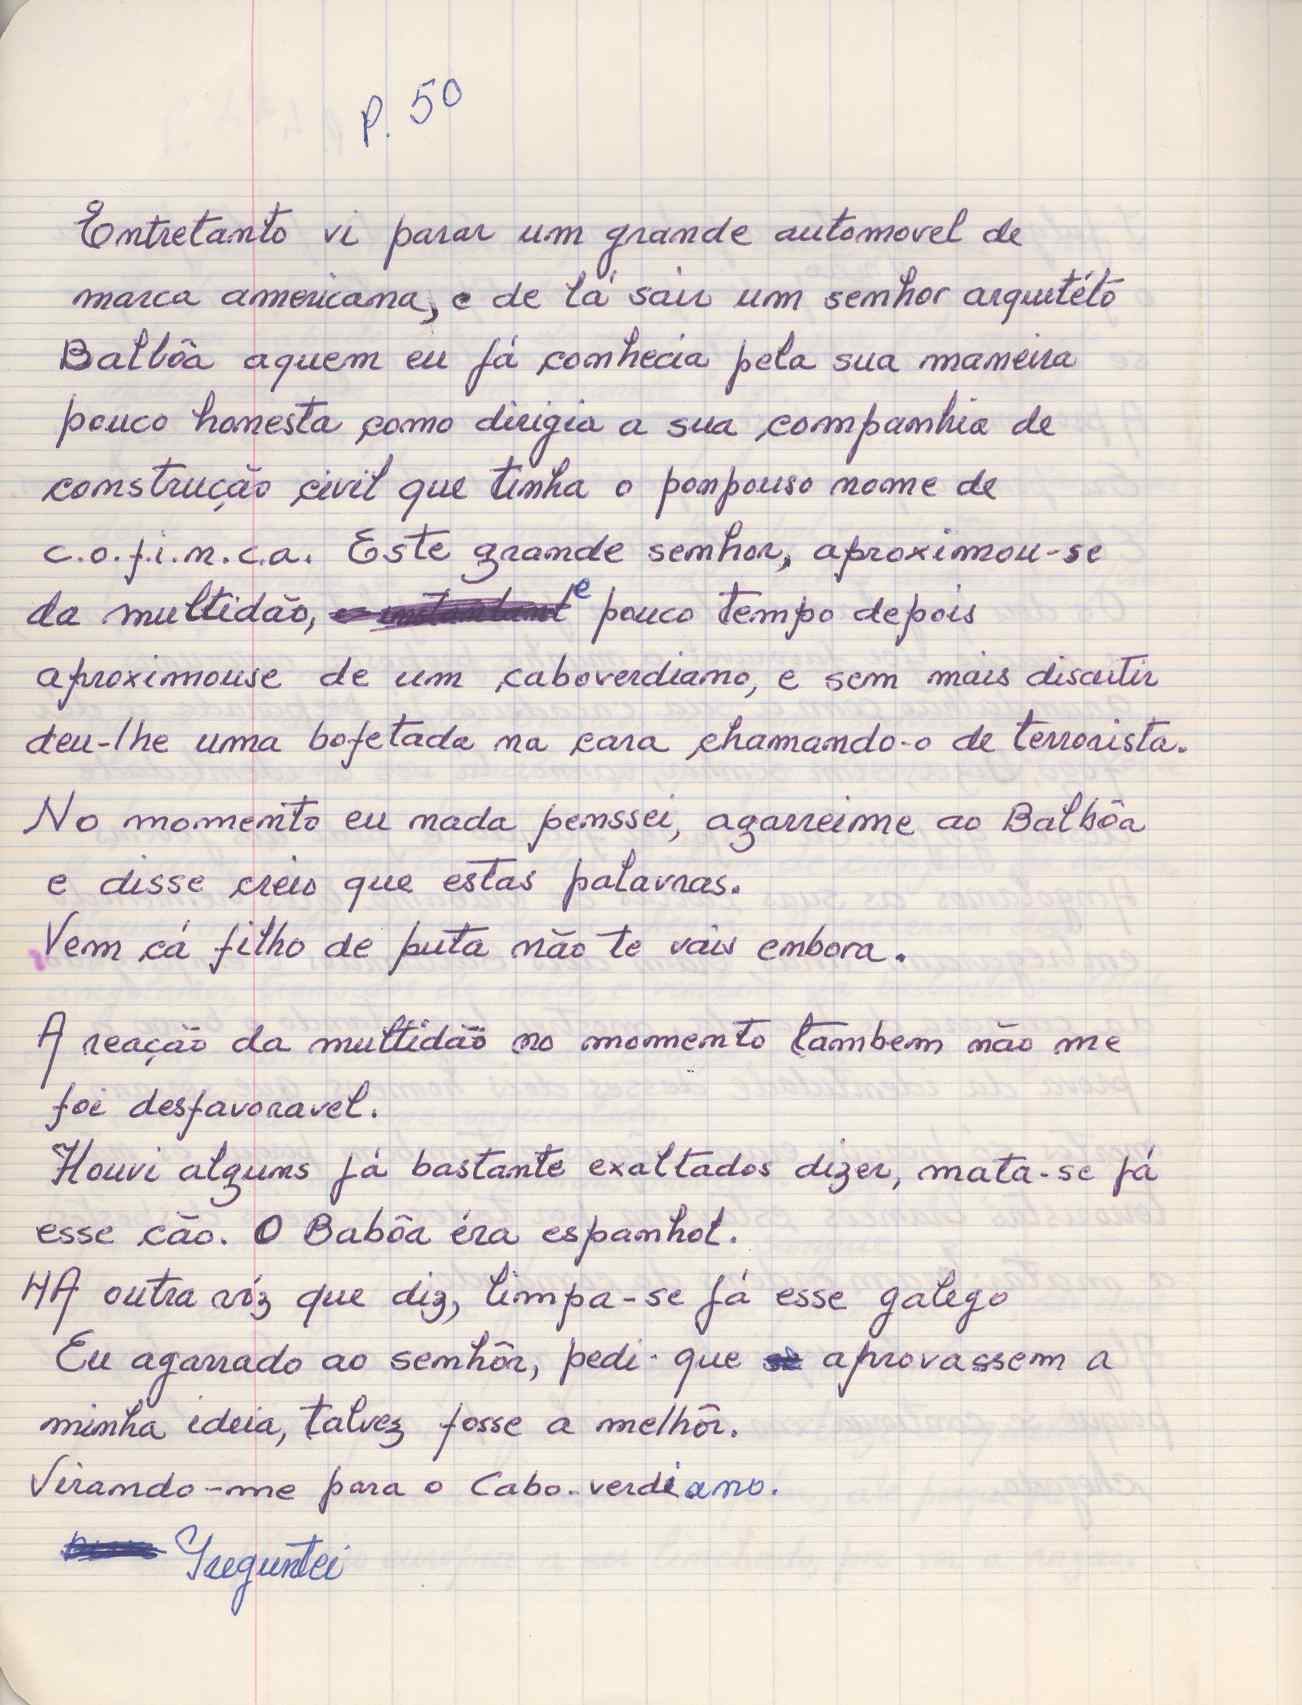 P. 50
Entretanto vi parar um grande automovel de
marca americana, e de lá sair um senhor arquetétò
Balbôa aquem eu já conhecia pela sua maneira
pouco honesta como dirigia a sua companhia de
construção civil que tinha o pompouso nome de
c.o.f.i.n.c.a. Este grande senhor, aproximou-se
da multidão, e pouco tempo depois
aproximouse de um caboverdiano, e sem mais discutir
deu-lhe uma bofetada na cara chamando-o de terrorista.
No momento eu nada penssei, agarreime ao Balbôa
e disse creio que estas palavras.
Vem cá filho de puta não te vais embora.
A reação da multidão no momento tambem não me
foi desfavoravel.
Houvi alguns já bastante exaltados dizer, mata-se já
esse cão. O Babôa éra espanhol.
HA outra vóz que diz, limpa-se já esse galego
Eu agarrado ao senhôr, pedi que aprovassem a
minha ideia, talvez fosse a melhôr.
Virando-me para o Cabo-verdiano.
Preguntei